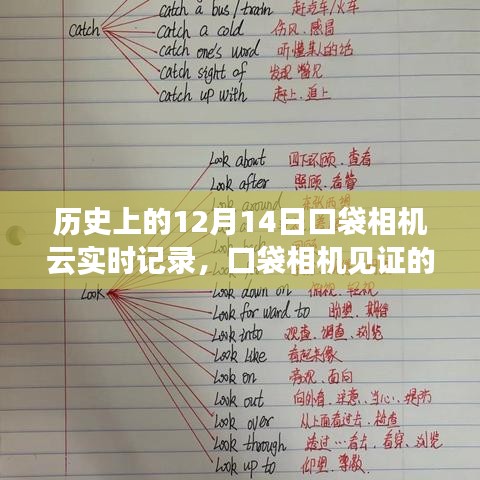 catch a bus/train 赶汽车/火车
Catch
catch a cold 伤风、感冒
Catch one's word 听懂某人的话
Catch sight of 发现、瞥见
Catch up with 赶上、追上
Look about 四下环顾、查看
Look after 照顾、看管
Look around
历史上的12月14日口袋相机
云实时记录，口袋相机见证的
Look
Look down on 俯视、轻视
Look forward to 盼望、期待
Look into 观查、调查、浏览
Look like 看起来像
Look on 旁观、面向
Look out 向外看、注意、当心、提防
Look over 从上面看过去、检查
Look through 透过…看去、看穿、浏览
Look up to 仰望、尊敬